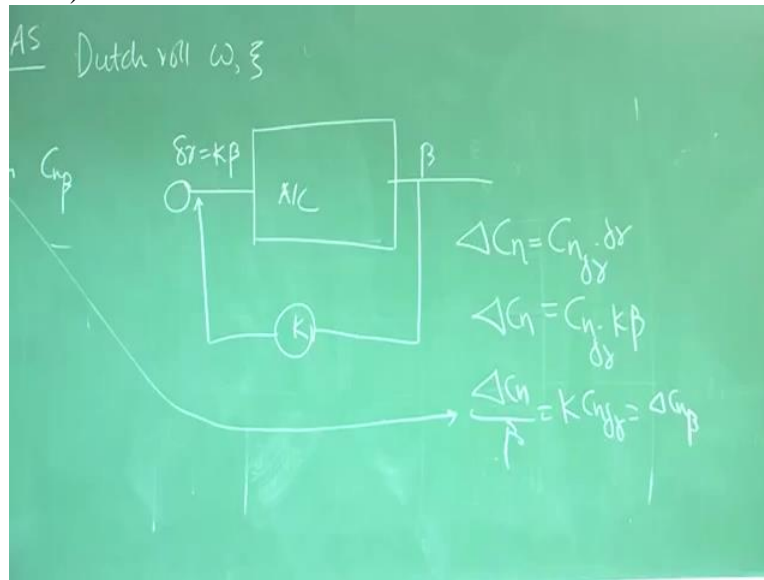 AS Dutch roll ω, ξ
Cnβ
δr=Kβ
β
A/C
K
ΔCn = Cnδr · δr
ΔCn = Cnδr · Kβ
ΔCn/β = K Cnδr = ΔCnβ